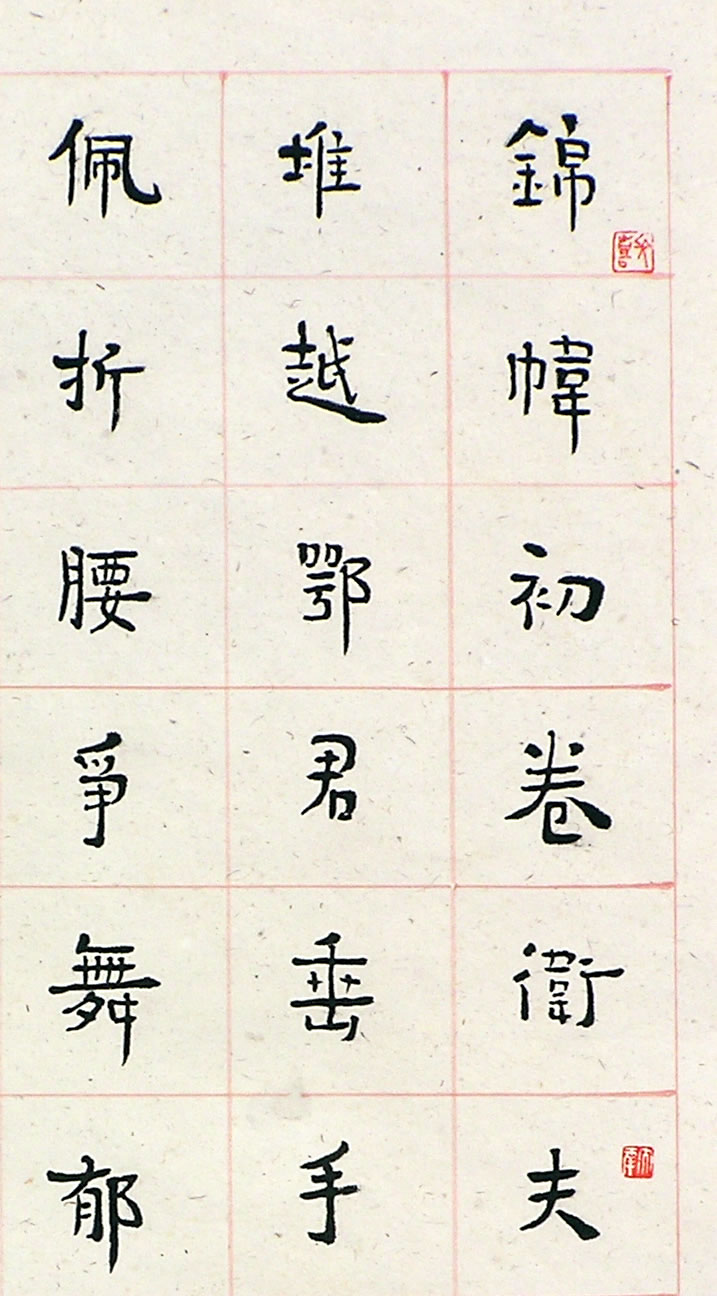 錦幃初卷衛夫
堆越鄂君垂手
佩折腰爭舞郁